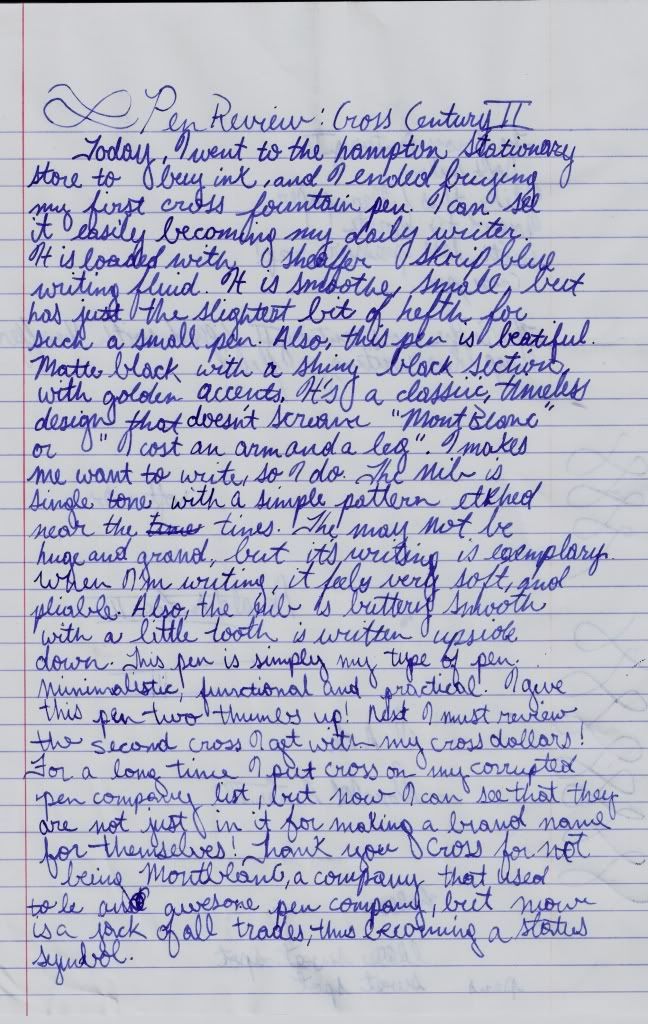 Pen Review: Cross Century II
Today, I went to the hampton Stationary
store to buy ink, and I ended buying
my first cross fountain pen. I can see
it easily becoming my daily writer.
It is loaded with sheaffer skrip blue
writing fluid. It is smoothe, small, but
has just the slightest bit of hefth for
such a small pen. Also, this pen is beatiful.
Matte black with a shiny black section,
with golden accents. It's a classic, timeless
design that doesn't scream "MontBlanc"
or "I cost an arm and a leg". I makes
me want to write, so I do. The nib is
single tone with a simple pattern etkhed
near the tines. The may not be
huge and grand, but its writing is exemplary.
When I'm writing, it feels very soft, and
pliable. Also, the nib is buttery smooth
with a little tooth is written upside
down. This pen is simply my type of pen.
Minimalistic, functional and practical. I give
this pen two thumbs up! Next I must review
the second cross I got with my cross dollars!
For a long time I put cross on my corrupted
pen company list, but now I can see that they
are not just in it for making a brand name
for themselves! Thank you Cross for not
being Montblanc, a company that used
to be an awesome pen company, but now
is a jack of all trades, thus becoming a status
symbol.